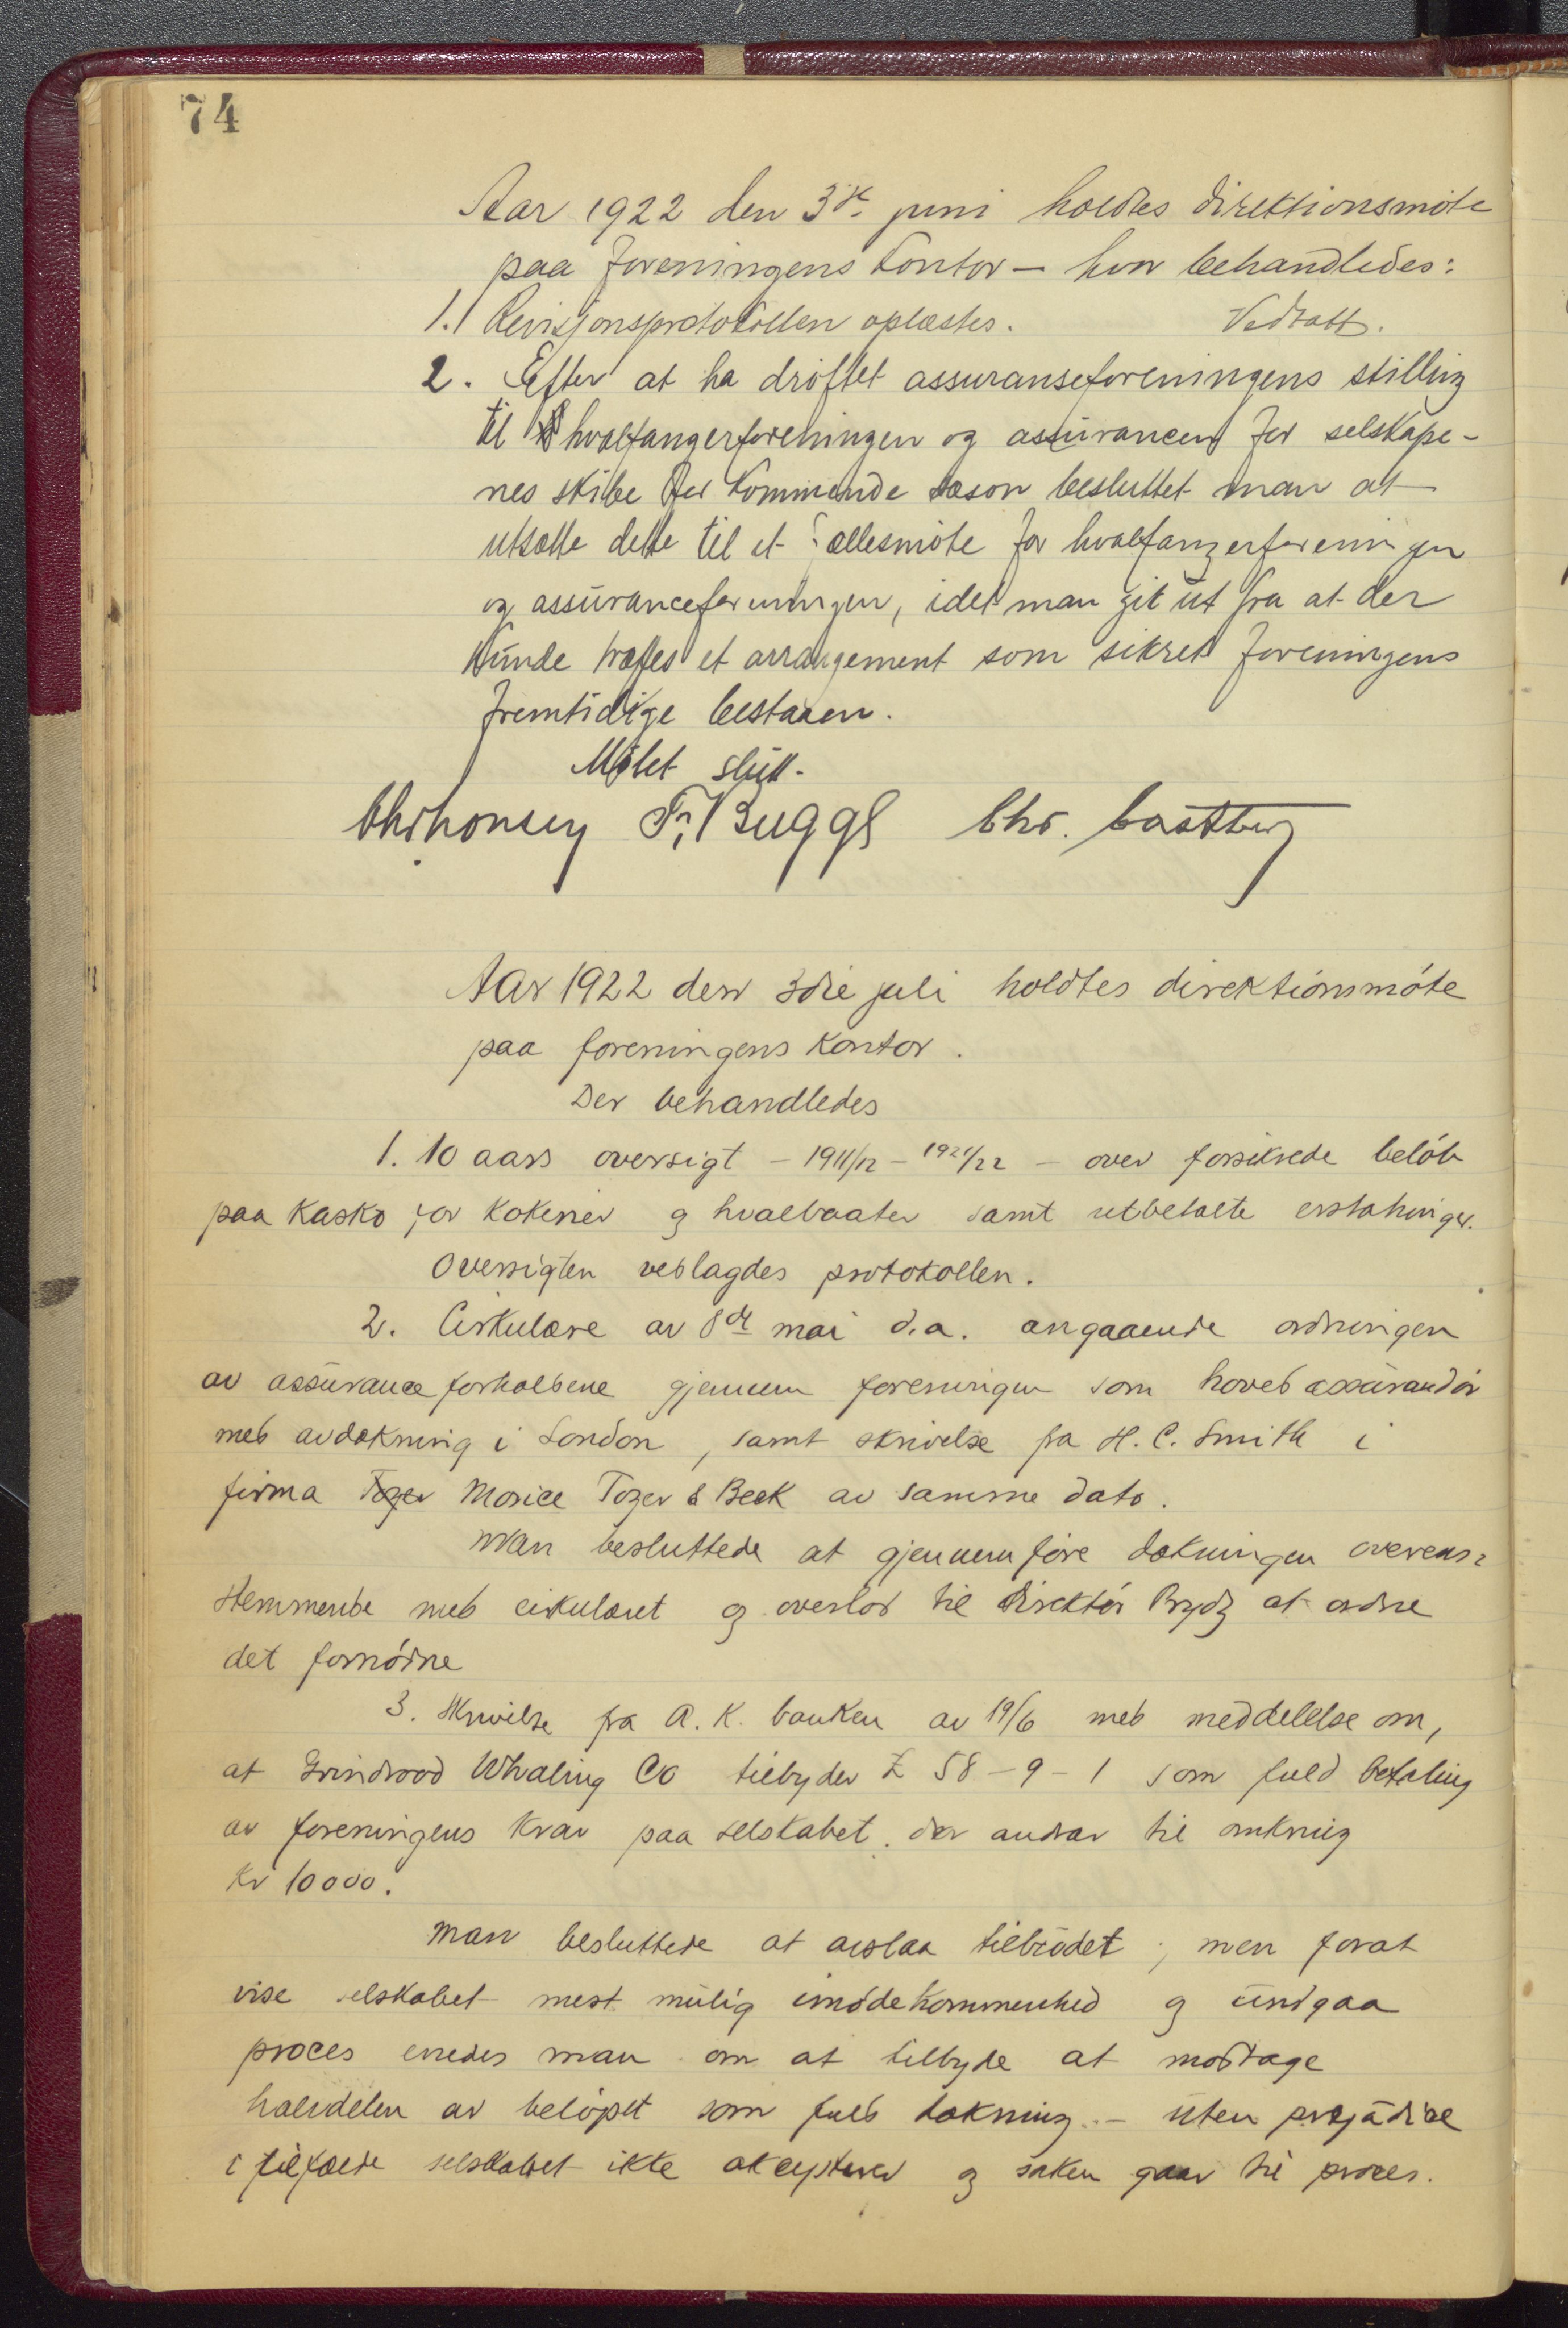 74
Aar 1922 den 3de juni holdtes direktionsmöte
paa foreningens kontor — hvor behandledes:
1. Revisjonsprotokollen oplæstes. Vedtatt.
2. Efter at ha dröftet assuranseforeningens stilling
til hvalfangerforeningen og assurancen for selskape-
nes skibe for kommende sæson besluttet man at
utsætte dette til et fællesmöte for hvalfangerforeningen
og assuranceforeningen, idet man git ut fra at der
kunde træffes et arrangement som sikret foreningens
fremtidige bestaaen.
Mötet slutt.
Fr. Bugge Chr. Castberg
Aar 1922 den 3die juli holdtes direktionsmöte
paa foreningens kontor.
Der behandledes
1. 10 aars oversigt – 1911/12 – 1921/22 – over forsikrede belöb
paa kasko for kokerier og hvalbaater samt utbetalte erstatninger.
Oversigten vedlagdes protokollen.
2. Cirkulære av 8de mai d.a. angaaende ordningen
av assuranceforholdene gjennem foreningen som hovedassurandör
med avdækning i London, samt skrivelse fra H. C. Smith i
firma Tozer Morice Tozer & Beck av samme dato.
Man besluttede at gjennemföre dækningen overens-
stemmende med cirkulæret og overlod til direktör Bryde at ordne
det fornödne
3. Skrivelse fra A. K. banken av 19/6 med meddelelse om,
at Grindrood Whaling Co tilbyder £ 58–9–1 som fuld betaling
av foreningens krav paa selskabet, der andrar til omkring
Kr 10000.
Man besluttede at avslaa tilbudet; men forat
vise selskabet mest mulig imödekommenhed og undgaa
proces enedes man om at tilbyde at modtage
halvdelen av belöpet som fuld dækning – uten præjudice
i tilfælde selskabet ikke aksepterer og saken gaar til proces.